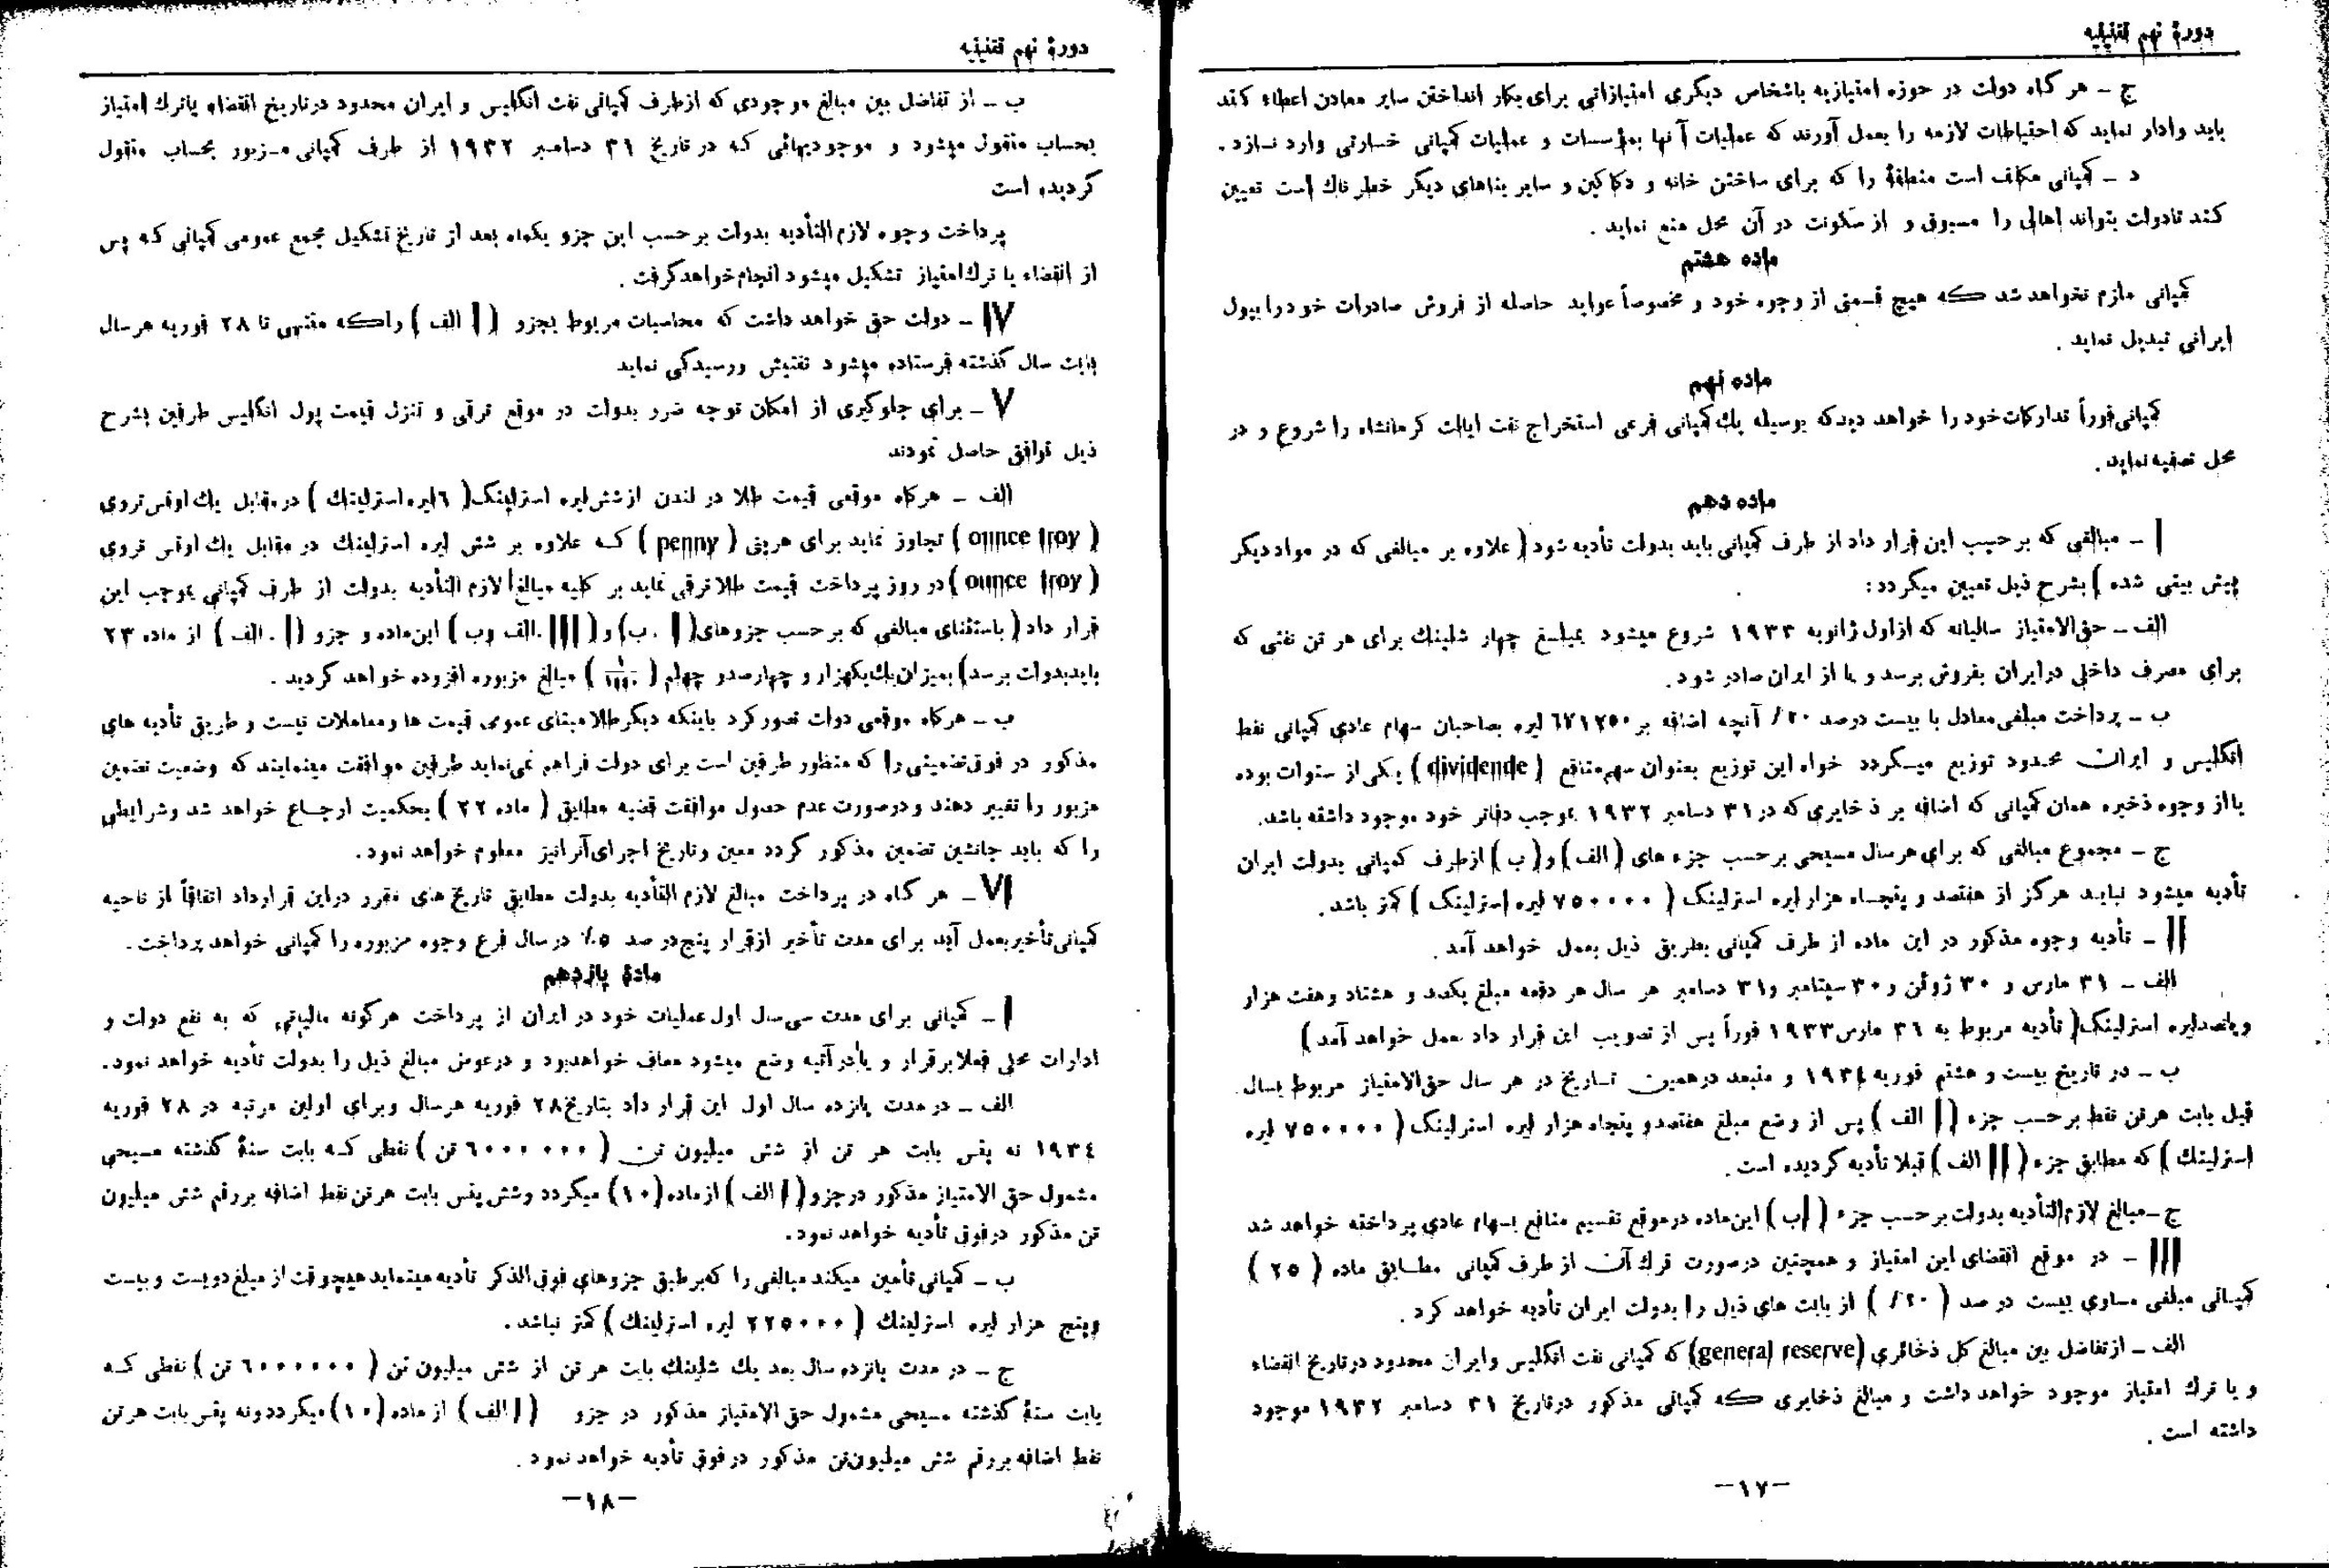 دورهٔ نهم تقنینیه
ج – هر گاه دولت در حوزه امتیازیه باشخاص دیگری امتیازاتی برای بکار انداختن سایر معادن اعطاء کند
باید وادار نماید که احتیاطات لازمه را بعمل آورند که عملیات آنها بمؤسسات و عملیات کمپانی خسارتی وارد نسازد .
د – کمپانی مکلف است منطقهٔ را که برای ساختن خانه و دکاکین و سایر بناهای دیگر خطر ناك است تعیین
کند تادولت بتواند اهالی را مسبوق و از سکونت در آن محل منع نماید .
ماده هشتم
کمپانی ملزم نخواهد شد که هیچ قسمتی از وجوه خود و مخصوصاً عواید حاصله از فروش صادرات خود را بپول
ایرانی تبدیل نماید .
ماده نهم
کمپانی فوراً تدارکات خود را خواهد دید که بوسیله یك کمپانی فرعی استخراج نفت ایالت کرمانشاه را شروع و در
محل تصفیه نماید .
ماده دهم
I – مبالغی که بر حسب این قرار داد از طرف کمپانی باید بدولت تأدیه شود ( علاوه بر مبالغی که در مواد دیگر
پیش بینی شده ) بشرح ذیل تعیین میگردد :
الف – حق‌الامتیاز سالیانه که از اول ژانویه ۱۹۳۳ شروع میشود بمبلغ چهار شلینك برای هر تن نفتی که
برای مصرف داخلی در ایران بفروش برسد و یا از ایران صادر شود .
ب – پرداخت مبلغی معادل با بیست درصد ۲۰٪ آنچه اضافه بر ۶۷۱۲۵۰ لیره بصاحبان سهام عادی کمپانی نفط
انگلیس و ایران محدود توزیع میگردد خواه این توزیع بعنوان سهم منافع ( dividende ) یکی از سنوات بوده
یا از وجوه ذخیره همان کمپانی که اضافه بر ذخایری که در ۳۱ دسامبر ۱۹۳۲ بموجب دفاتر خود موجود داشته باشد.
ج – مجموع مبالغی که برای هر سال مسیحی بر حسب جزء های ( الف ) و ( ب ) از طرف کمپانی بدولت ایران
تأدیه میشود نباید هرگز از هفتصد و پنجاه هزار لیره استرلینک ( ۷۵۰۰۰۰ لیره استرلینک ) کمتر باشد .
II – تأدیه وجوه مذکور در این ماده از طرف کمپانی بطریق ذیل بعمل خواهد آمد .
الف – ۳۱ مارس و ۳۰ ژوئن و ۳۰ سپتامبر و ۳۱ دسامبر هر سال هر دفعه مبلغ یکصد و هشتاد و هفت هزار
و پانصد لیره استرلینك ( تأدیه مربوط به ۳۱ مارس ۱۹۳۳ فوراً پس از تصویب این قرار داد بعمل خواهد آمد )
ب – در تاریخ بیست و هشتم فوریه ۱۹۳۴ و منبعد در همین تاریخ در هر سال حق‌الامتیاز مربوط بسال
قبل بابت هر تن نفط بر حسب جزء ( I الف ) پس از وضع مبلغ هفتصد و پنجاه هزار لیره استرلینک ( ۷۵۰۰۰۰ لیره
استرلینك ) که مطابق جزء ( II الف ) قبلا تأدیه گردیده است .
ج – مبالغ لازم التأدیه بدولت بر حسب جزء ( Iب ) این ماده در موقع تقسیم منافع بسهام عادی پرداخته خواهد شد
III – در موقع انقضای این امتیاز و همچنین در صورت ترك آن از طرف کمپانی مطابق ماده ( ۲۵ )
کمپانی مبلغی مساوی بیست در صد ( ۲۰٪ ) از بابت های ذیل را بدولت ایران تأدیه خواهد کرد .
الف – از تفاضل بین مبالغ کل ذخائری (general reserve) که کمپانی نفت انگلیس و ایران محدود در تاریخ انقضاء
و یا ترك امتیاز موجود خواهد داشت و مبالغ ذخایری که کمپانی مذکور در تاریخ ۳۱ دسامبر ۱۹۳۲ موجود
داشته است .
–۱۷–
دورهٔ نهم تقنینیه
ب – از تفاضل بین مبالغ موجودی که از طرف کمپانی نفت انگلیس و ایران محدود در تاریخ انقضاء یا ترك امتیاز
بحساب منقول میشود و موجودیهائی که در تاریخ ۳۱ دسامبر ۱۹۳۲ از طرف کمپانی مزبور بحساب منقول
گردیده است
پرداخت وجوه لازم التأدیه بدولت بر حسب این جزو یکماه بعد از تاریخ تشکیل مجمع عمومی کمپانی که پس
از انقضاء یا ترك امتیاز تشکیل میشود انجام خواهد گرفت .
IV – دولت حق خواهد داشت که محاسبات مربوط بجزو ( I الف ) را که منتهی تا ۲۸ فوریه هر سال
بابت سال گذشته فرستاده میشود تفتیش و رسیدگی نماید
V – برای جلوگیری از امکان توجه ضرر بدولت در موقع ترقی و تنزل قیمت پول انگلیس طرفین بشرح
ذیل توافق حاصل نمودند
الف – هرگاه موقعی قیمت طلا در لندن از شش لیره استرلینک ( ۶ لیره استرلینك ) در مقابل یك اونس تروی
( ounce troy ) تجاوز نماید برای هر پنی ( penny ) که علاوه بر شش لیره استرلینك در مقابل یك اونس تروی
( ounce troy ) در روز پرداخت قیمت طلا ترقی نماید بر کلیه مبالغ لازم التأدیه بدولت از طرف کمپانی بموجب این
قرار داد ( باستثنای مبالغی که بر حسب جزوهای ( I . ب ) و ( III . الف و ب ) این ماده و جزو ( I . الف ) از ماده ۲۳
باید بدولت برسد ) بمیزان یك یکهزار و چهارصد و چهلم ( ۱/۱۴۴۰ ) مبالغ مزبوره افزوده خواهد گردید .
ب – هرگاه موقعی دولت تصور کرد باینکه دیگر طلا مبنای عمومی قیمت ها و معاملات نیست و طریق تأدیه های
مذکور در فوق تضمینی را که منظور طرفین است برای دولت فراهم نمی‌نماید طرفین موافقت مینمایند که وضعیت تضمین
مزبور را تغییر دهند و در صورت عدم حصول موافقت قضیه مطابق ( ماده ۲۲ ) بحکمیت ارجاع خواهد شد و شرایطی
را که باید جانشین تضمین مذکور گردد معین و تاریخ اجرای آنرا نیز معلوم خواهد نمود .
VI – هر گاه در پرداخت مبالغ لازم التأدیه بدولت مطابق تاریخ های مقرر در این قرارداد اتفاقاً از ناحیه
کمپانی تأخیر بعمل آید برای مدت تأخیر از قرار پنج در صد ۵٪ در سال فرع وجوه مزبوره را کمپانی خواهد پرداخت .
مادهٔ یازدهم
I – کمپانی برای مدت سی سال اول عملیات خود در ایران از پرداخت هر گونه مالیاتی که به نفع دولت و
ادارات محلی فعلا برقرار و یا در آتیه وضع میشود معاف خواهد بود و در عوض مبالغ ذیل را بدولت تأدیه خواهد نمود .
الف – در مدت پانزده سال اول این قرار داد بتاریخ ۲۸ فوریه هر سال و برای اولین مرتبه در ۲۸ فوریه
۱۹۳۴ نه پنس بابت هر تن از شش میلیون تن ( ۶۰۰۰۰۰۰ تن ) نفطی که بابت سنهٔ گذشته مسیحی
مشمول حق الامتیاز مذکور در جزو ( I الف ) از ماده (۱۰) میگردد و شش پنس بابت هر تن نفط اضافه بر رقم شش میلیون
تن مذکور در فوق تأدیه خواهد نمود .
ب – کمپانی تأمین میکند مبالغی را که بر طبق جزوهای فوق الذکر تأدیه مینماید هیچوقت از مبلغ دویست و بیست
و پنج هزار لیره استرلینك ( ۲۲۵۰۰۰ لیره استرلینك ) کمتر نباشد .
ج – در مدت پانزده سال بعد یك شلینك بابت هر تن از شش میلیون تن ( ۶۰۰۰۰۰۰ تن ) نفطی که
بابت سنهٔ گذشته مسیحی مشمول حق الامتیاز مذکور در جزو ( I الف ) از ماده (۱۰) میگردد و نه پنس بابت هر تن
نفط اضافه بر رقم شش میلیون تن مذکور در فوق تأدیه خواهد نمود .
–۱۸–